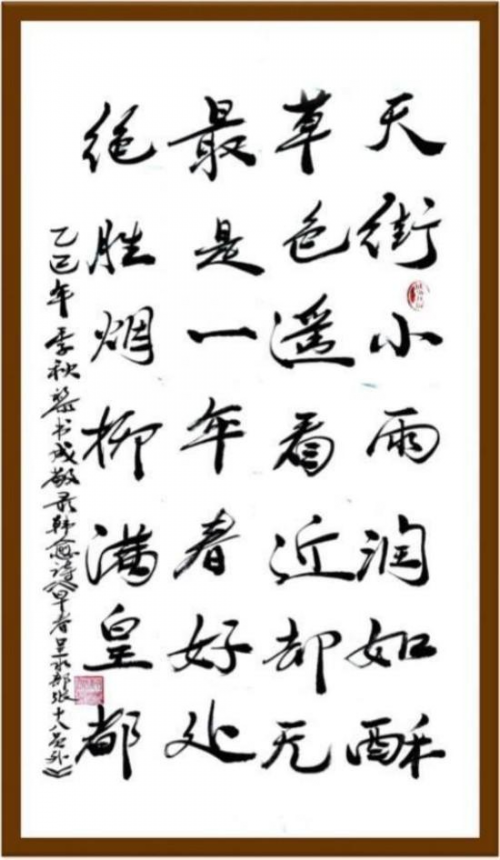 天街小雨润如酥
草色遥看近却无
最是一年春好处
绝胜烟柳满皇都
乙巳年季秋 书成敬录韩愈诗《早春呈水部张十八员外》